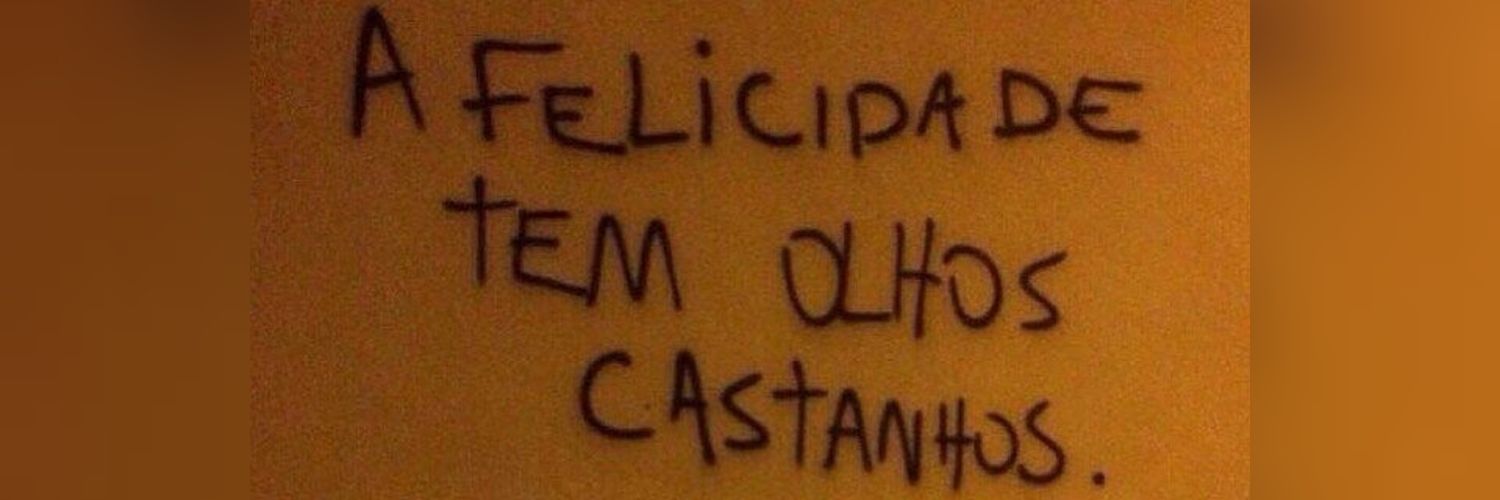 A FELiCIDADE
TEM OLHOS
CASTANHOS.